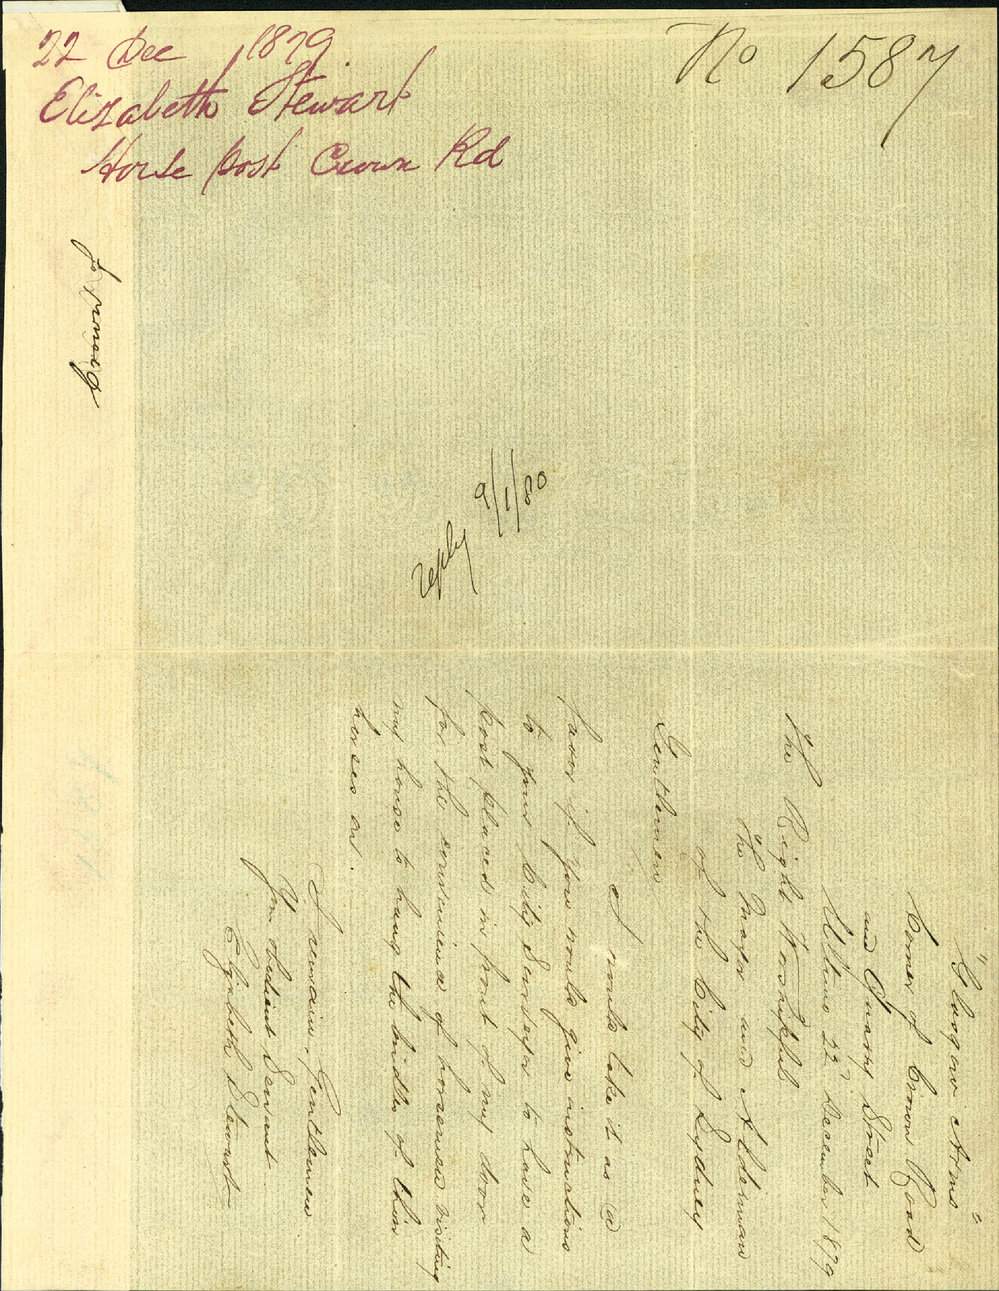 22 Dec 1879
Elizabeth Stewart
Horse post Crown Rd
No 1587
reply 9/1/80
"Glasgow Arms"
Corner of Crown Road
and Quarry Street
Ultimo 22d December 1879
The Right Worshipful
The Mayor and Alderman
of the City of Sydney
Gentlemen
I would take it as a
favor if you would give instructions
to your City Surveyor to have a
post placed in front of my door
for the convenience of horsemen visiting
my house to hang the bridles of their
horses on.
I remain, Gentlemen
Your Obedient Servant
Elizabeth Stewart